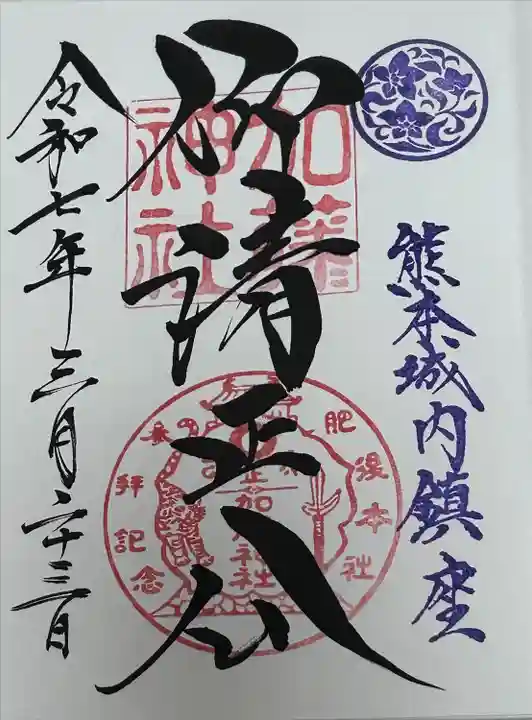 熊本城内鎮座
仰清正公
加藤
神社
肥後本社
参拝記念
令和七年三月二十三日